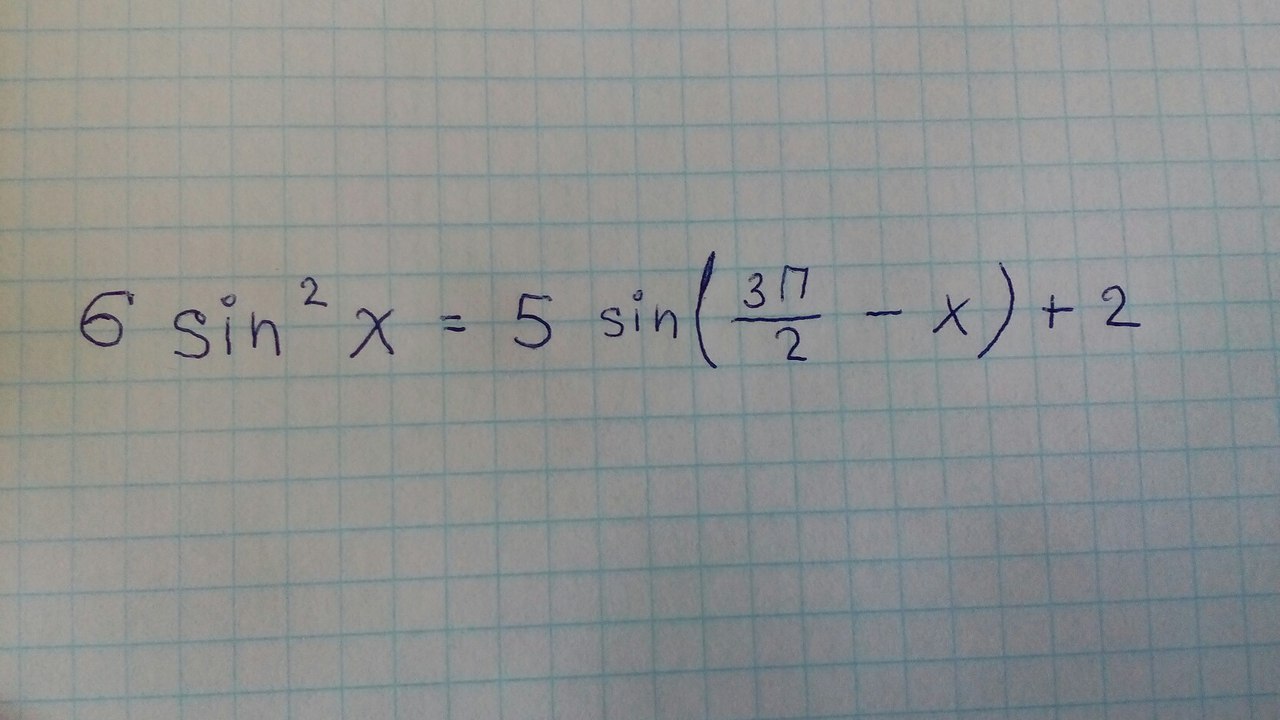 6 sin² x = 5 sin(3П/2 - x) + 2